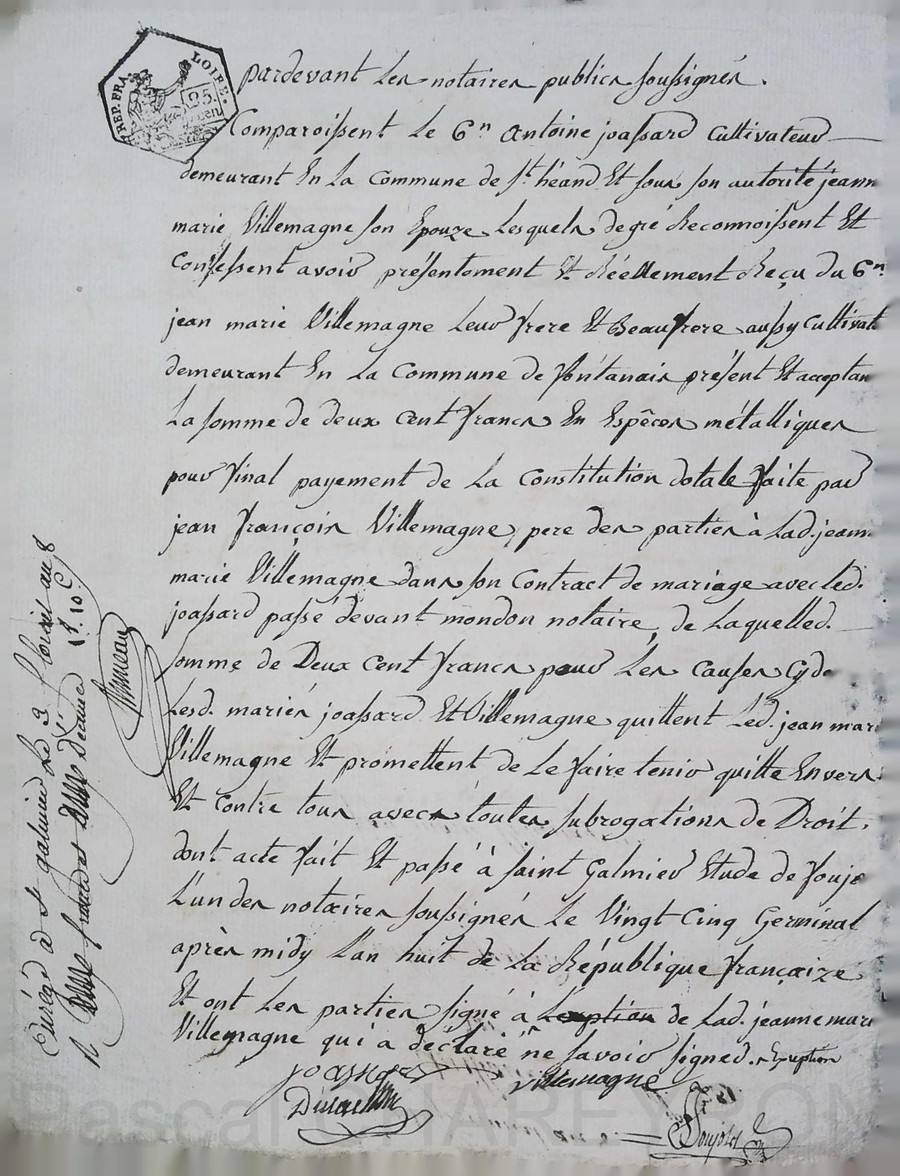 REP. FRA. LOIRE.
25.
pardevant les notaires publics soussignés.
Comparoissent Le Cn Antoine joassard Cultivateur
demeurant En La Commune de St héand Et sous son autorité jeann
marie Villemagne son Epouze Lesquels de gré Reconnoissent Et
Confessent avoir présentement Et Réellement Reçu du Cn
jean marie Villemagne Leur frere Et Beaufrere aussy Cultivat
demeurant En La Commune de fontanais présent Et acceptan
La somme de deux cent francs En Espêces métalliques
pour final payement de La Constitution dotale faite par
jean françois Villemagne, pere des parties à Lad. jeann
marie Villemagne dans son Contract de mariage avec Led.
joassard passé devant mondon notaire, de Laquelled.
somme de Deux cent francs pour Les Causes Cyd
Lesd. mariés joassard Et Villemagne quittent Led. jean mari
Villemagne Et promettent de Le faire tenir quitte Envers
Et Contre tous avec toutes subrogations de Droit.
dont acte fait Et passé à saint Galmier Etude de Fouje
L'un des notaires soussignés Le Vingt Cinq Germinal
après midy L'an huit de La République françaize
Et ont Les parties signé à L'exeption de Lad. jeanne mari
Villemagne qui a déclaré ne savoir signer. Exeption
joassard Villemagne
Enrég. à St galmier Le 3 floréal an 8